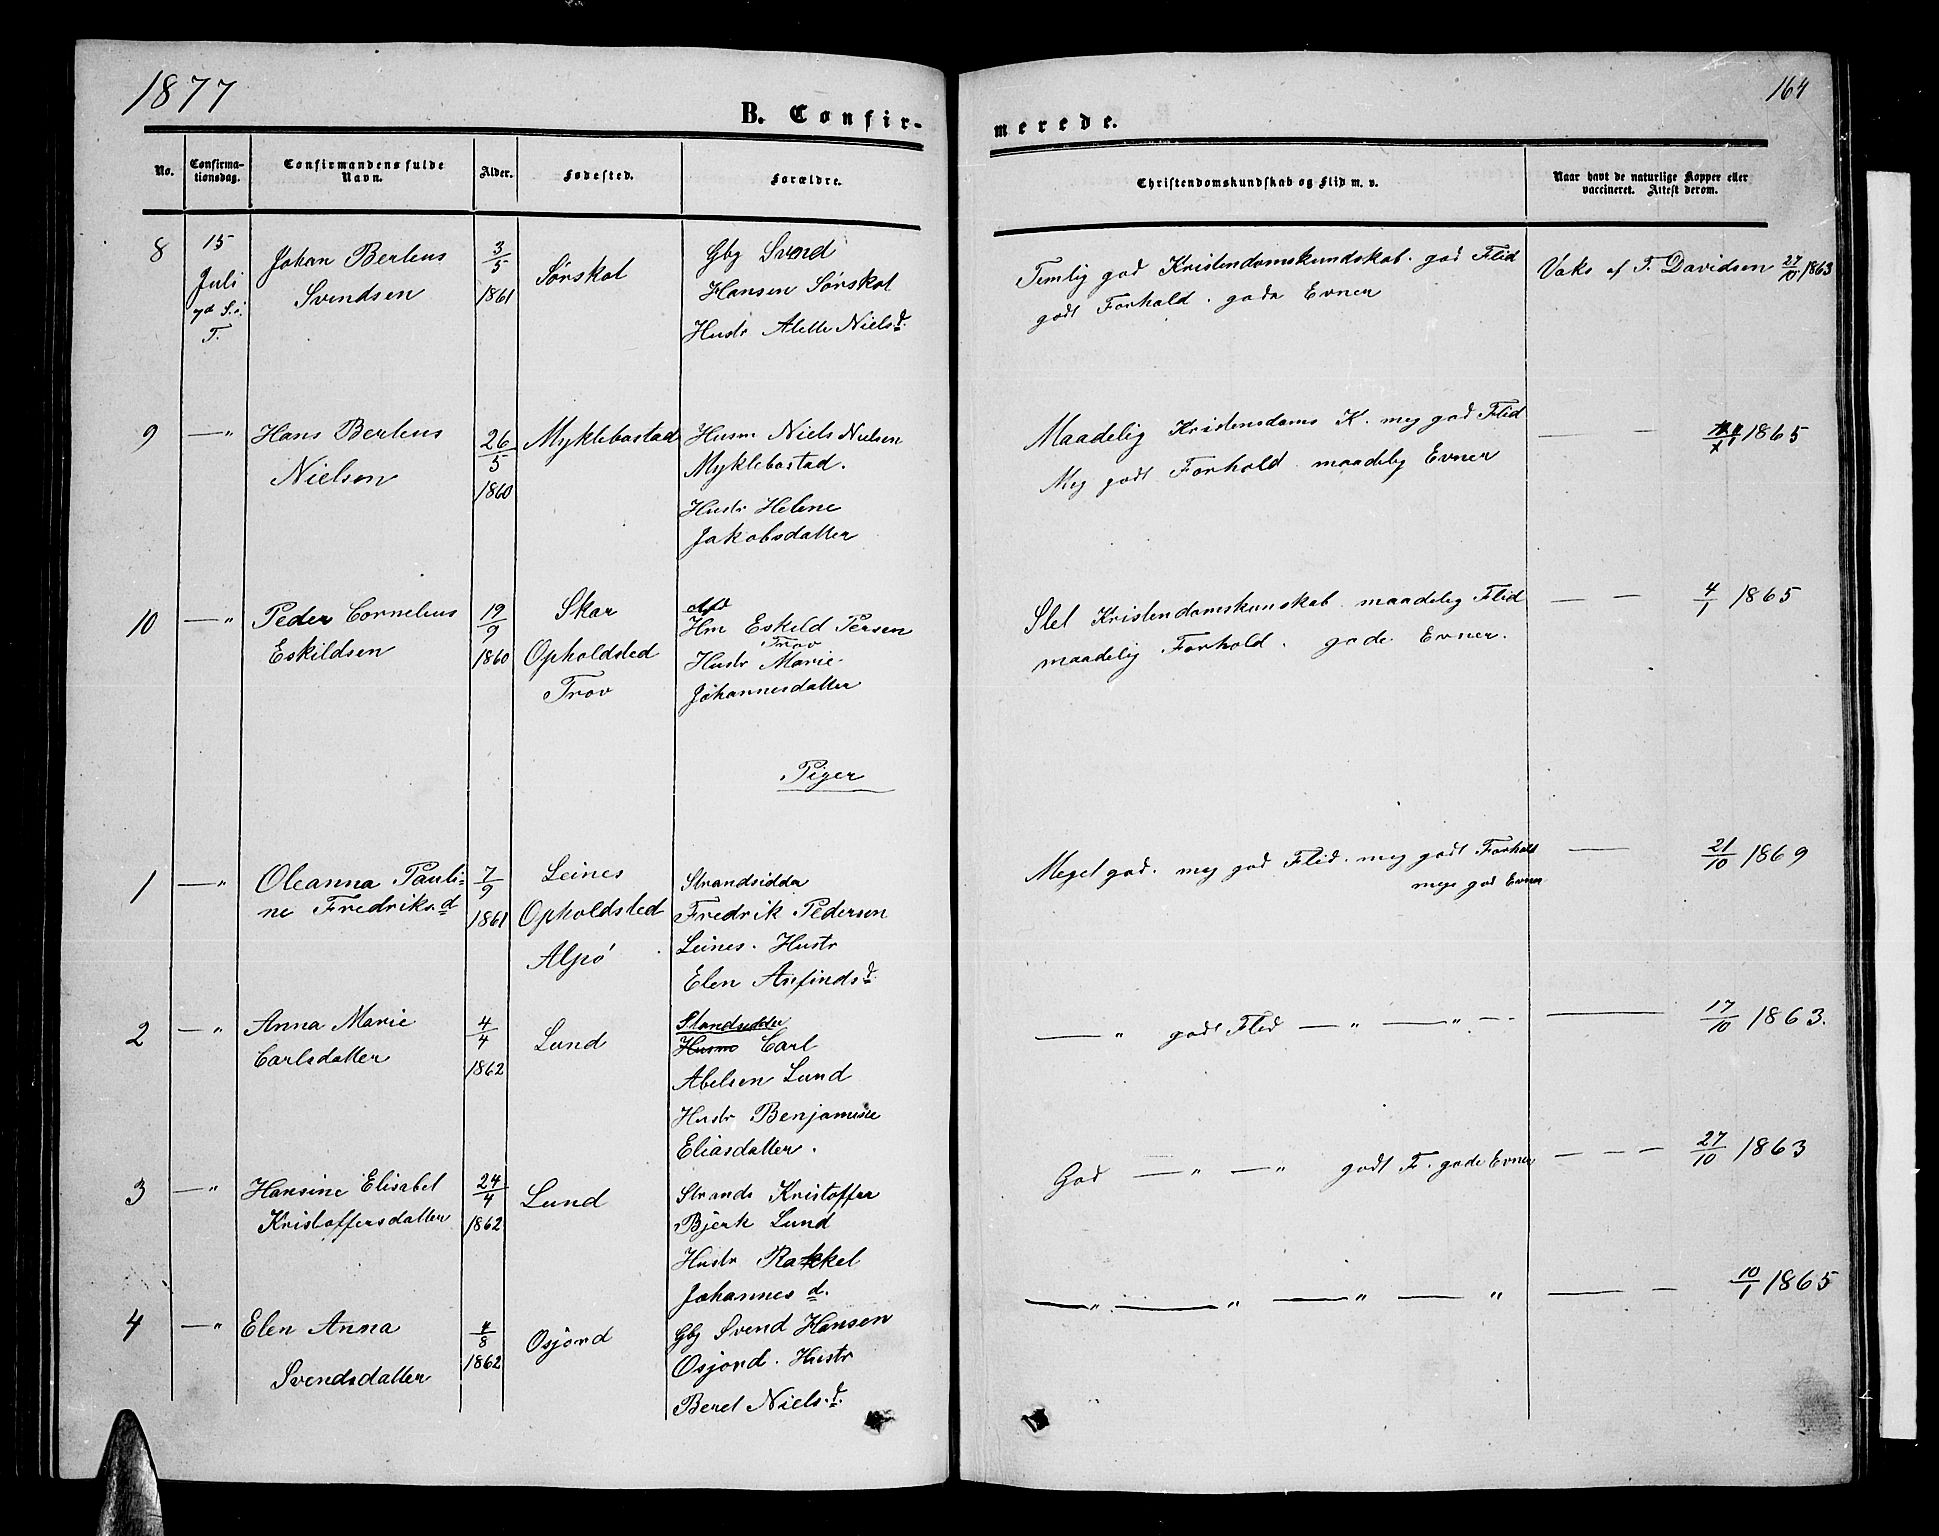 1877
B. Confir-
No.
Confirma-
tionsdag.
Confirmandens fulde
Navn.
Alder.
Fødested.
Forældre.
8
15
Juli
7d S. i.
T.
Johan Berteus
Svendsen
3/5
1861
Sørskot
Gbg Svend
Hansen Sørskot
Hustr Alette Nielsd.
9
—"
Hans Berteus
Nielsen
26/5
1860
Myklebostad
Husm Niels Nielsen
Myklebostad.
Hustr Helene
Jakobsdatter
10
—"
Peder Cornelius
Eskildsen
19/9
1860
Skar
Opholdsted
Trov
Afd
Hm Eskild Persen
Trov
Hustr Marie
Johannesdatter
Piger
1
—"
Oleanna Pauli-
ne Fredriks.d
7/9
1861
Leines
Opholdsted
Alpø
Strandsidder
Fredrik Pedersen
Leines. Hustr
Elen Anfindsd.
2
—"
Anna Marie
Carlsdatter
4/4
1862
Lund
Standsidder
Husm Carl
Abelsen Lund
Hustr Benjamine
Eliasdatter.
3
—"
Hansine Elisabet
Kristoffersdatter
24/4
1862
Lund
Strands Kristoffer
Bjerk Lund
Hustr Rakkel
Johannes d.
4
—"
Elen Anna
Svendsdatter
4/8
1862
Osjord
Gbg Svend Hansen
Osjord. Hustr
Beret Niels.d.
164
merede.
Christendomskundskab og Flid m. v.
Naar havt de naturlige Kopper eller
vaccineret. Attest derom.
Temlig god Kristendomskundskab. god Flid
godt Forhold. gode Evner
Vaks af T. Davidsen 27/10 1863
Maadelig Kristensdoms K. meg god Flid
Meg godt Forhold. maadelig Evner
— — 1865
Slet Kristendomskunskab. maadelig Flid
maadelig Forhold. gode Evner.
— — 4/1 1865
Meget god. meg god Flid. meg godt Forhold
meget god Evner
— 21/10 1869
—" godt Flid —" —" — -
— 17/10 1863.
God —" —" godt F. gode Evner
— — — 27/10 1863
—" —" —" — "
— — 10/1 1865